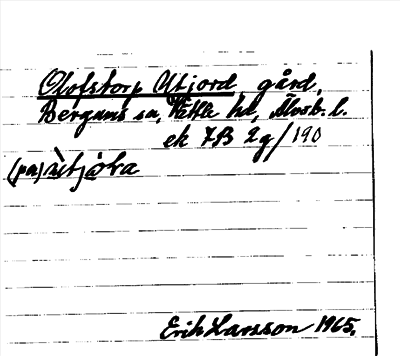 Olofstorp Utjord, gård,
Bergums sn, Vättle hd, Älvsb. l.
ek 7B 2g/190
(pa)
Erik Larsson 1965.